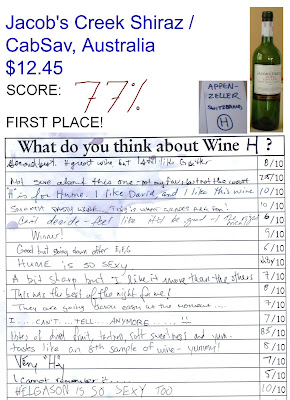 Jacob's Creek Shiraz /
CabSav, Australia
$12.45
SCORE: 77%
FIRST PLACE!
APPEN-
ZELLER
SWITZERLAND
H
What do you think about Wine H ?
Second best. A great wine but I still like G better 8/10
Not sure about this one - not my fav, but not the worst /10
H is for Hume. I like David and I like this wine /10
Smooth easy wine. This is what grapes are for! 10/10
Can't decide - feel like it'd be good w/ the right 6/10
Winner! 9/10
Good but going down after E,F,G 6/10
HUME IS SO SEXY /10
A bit sharp but I like it more than the others 8/10
This was the best of the night for me! 8/10
They are going down easy at the moment... 7/10
I .... CAN'T.... TELL.... ANYMORE..... !! 7/10
Notes of dried fruit, tannins, soft sweetness and yum. 85/10
tastes like an 8th sample of wine - yummy! 8/10
Very "H" 7/10
I cannot remember it..... 5/10
HELGASON IS SO SEXY TOO 10/10